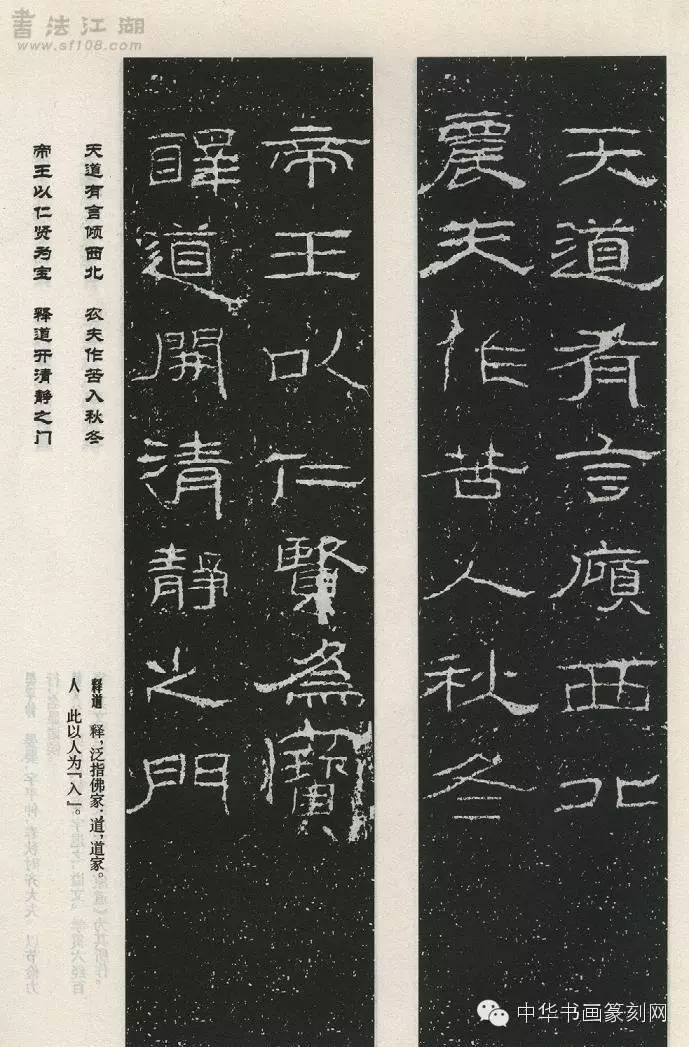 書法江湖
www.sf108.com
天道有言傾西北
農夫作苦人秋冬
帝王以仁賢為寶
釋道開清靜之門
天道有言倾西北 农夫作苦入秋冬
帝王以仁贤为宝 释道开清静之门
释道 释，泛指佛家；道，道家。
人 此以人为『入』。
中华书画篆刻网